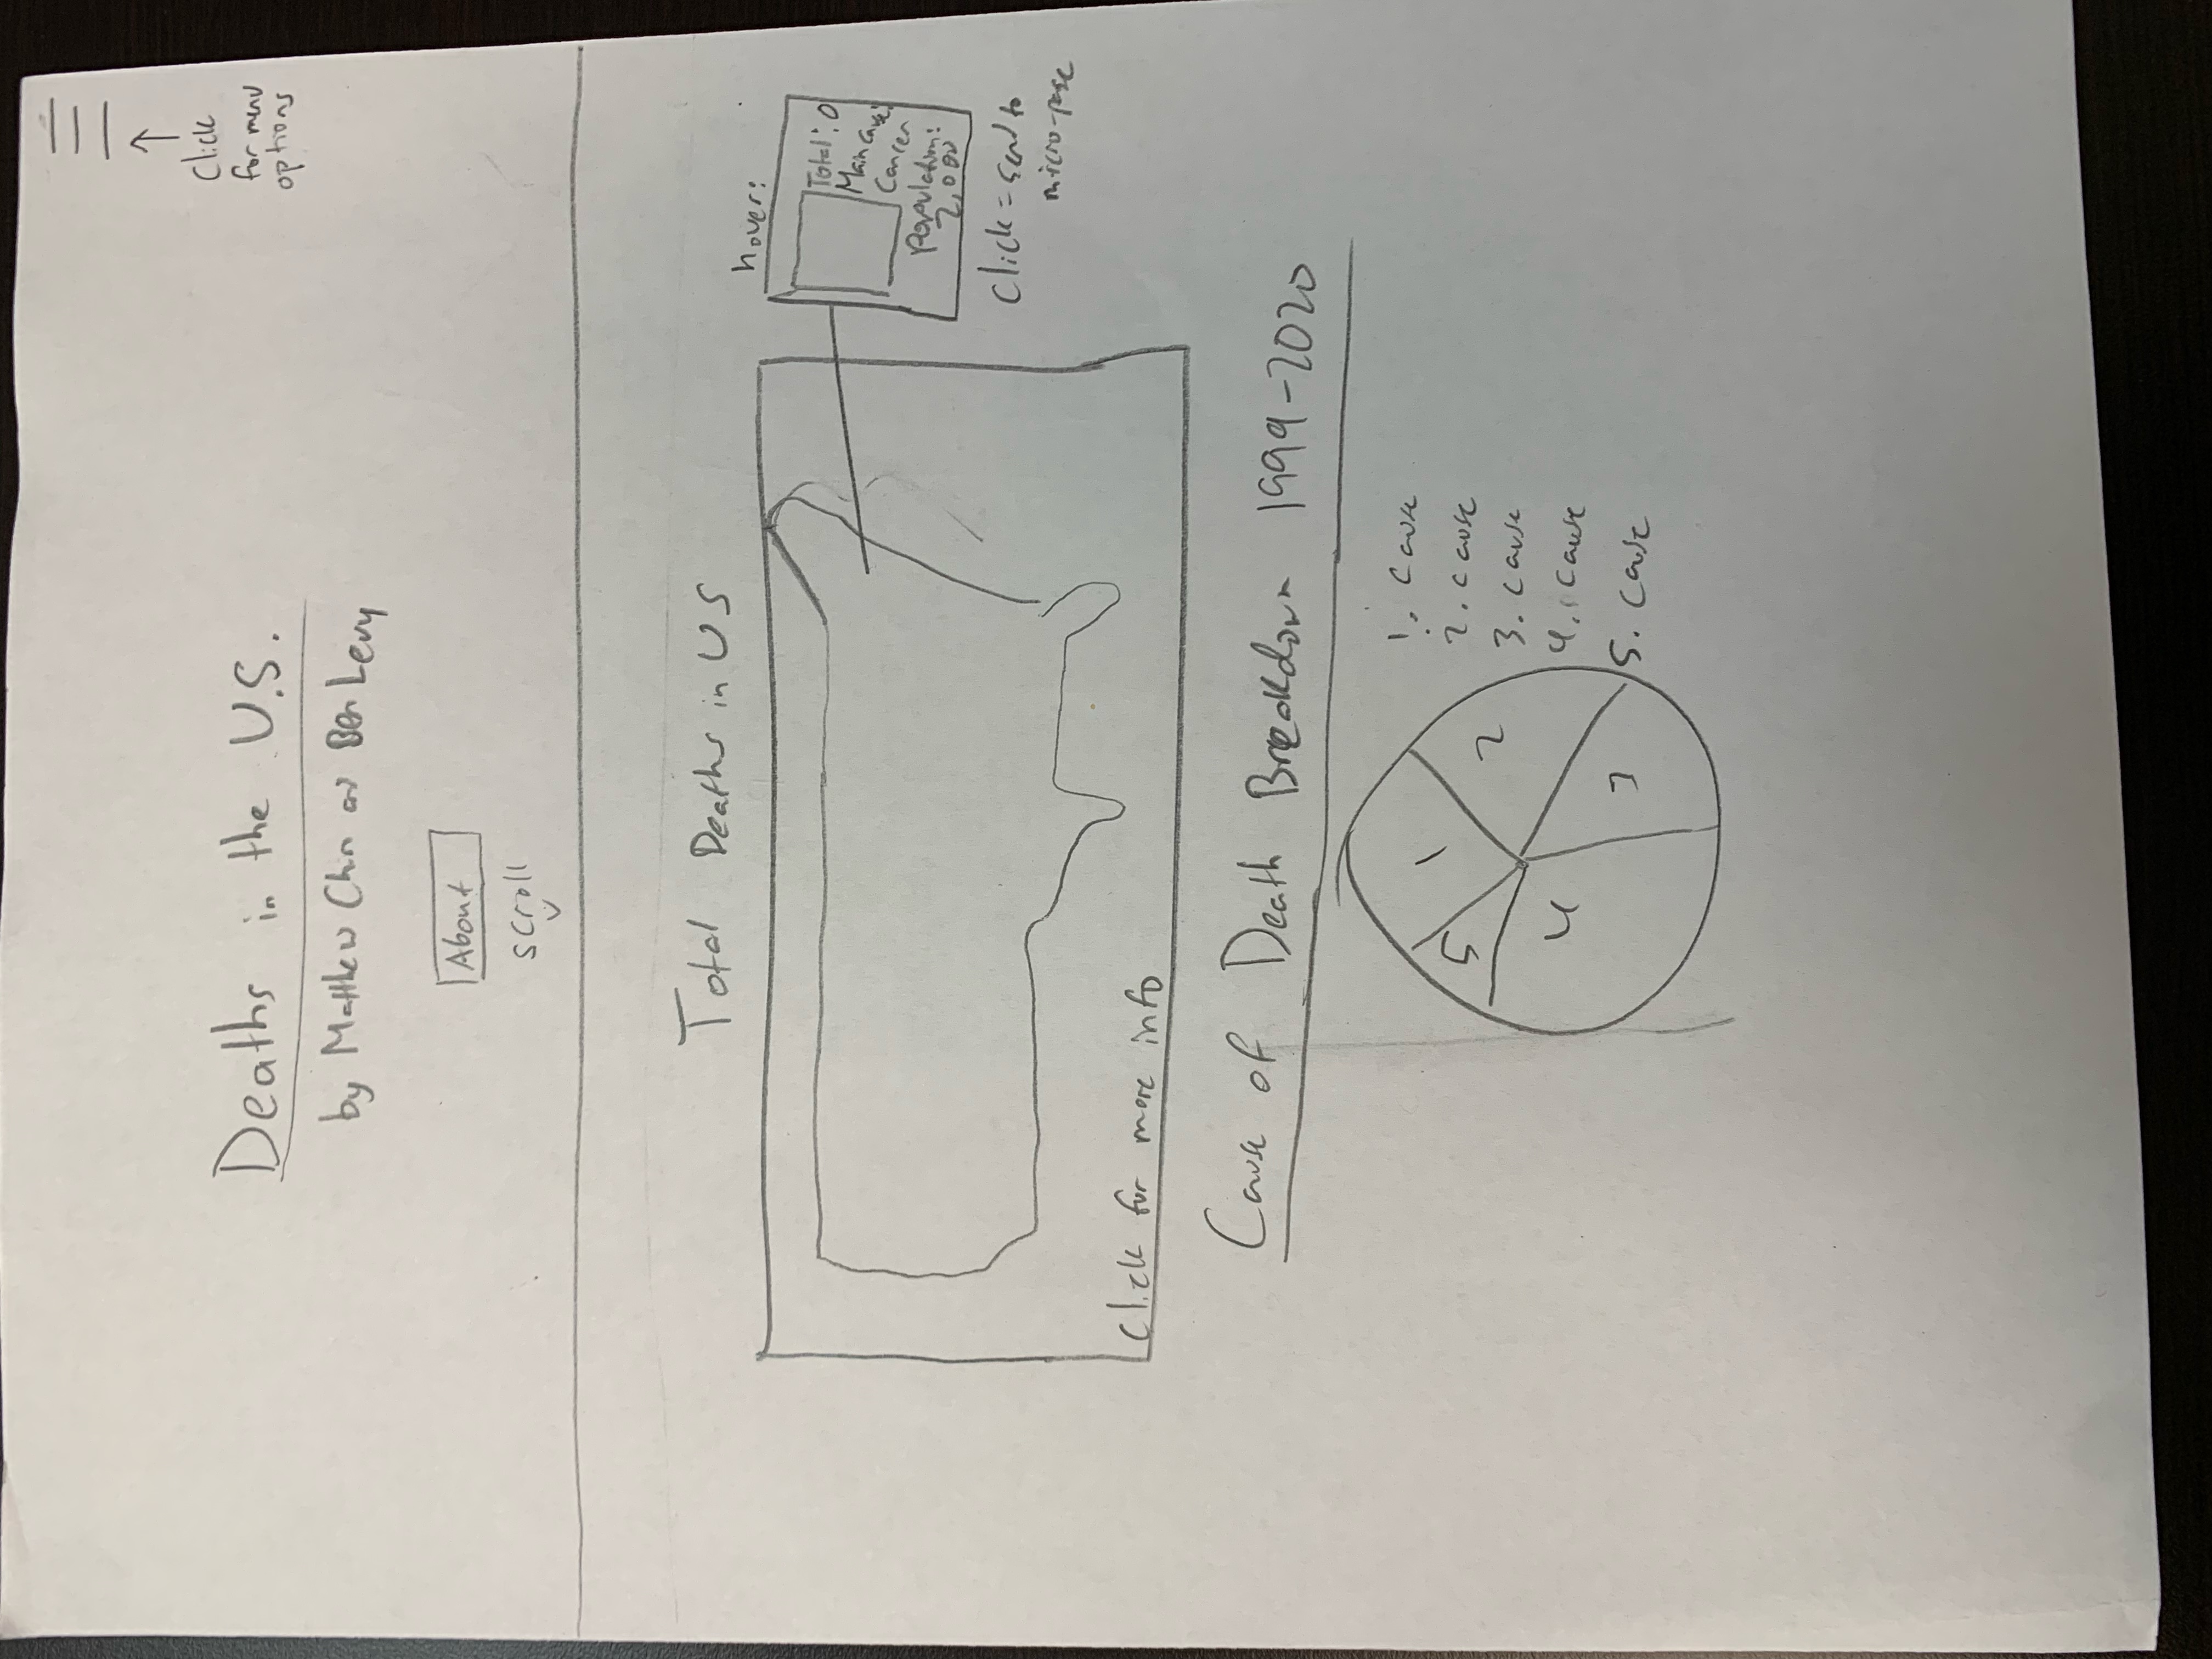 Click
for menu
options
Deaths in the U.S.
by Matthew Chin and Ben Levy
About
scroll
Total Deaths in US
hover:
Total: 0
Main cause:
Cancer
Population:
2,000
Click = send to
micro-page
Click for more info
Cause of Death Breakdown 1999-2020
1
2
3
4
5
1. Cause
2. cause
3. cause
4. cause
5. cause